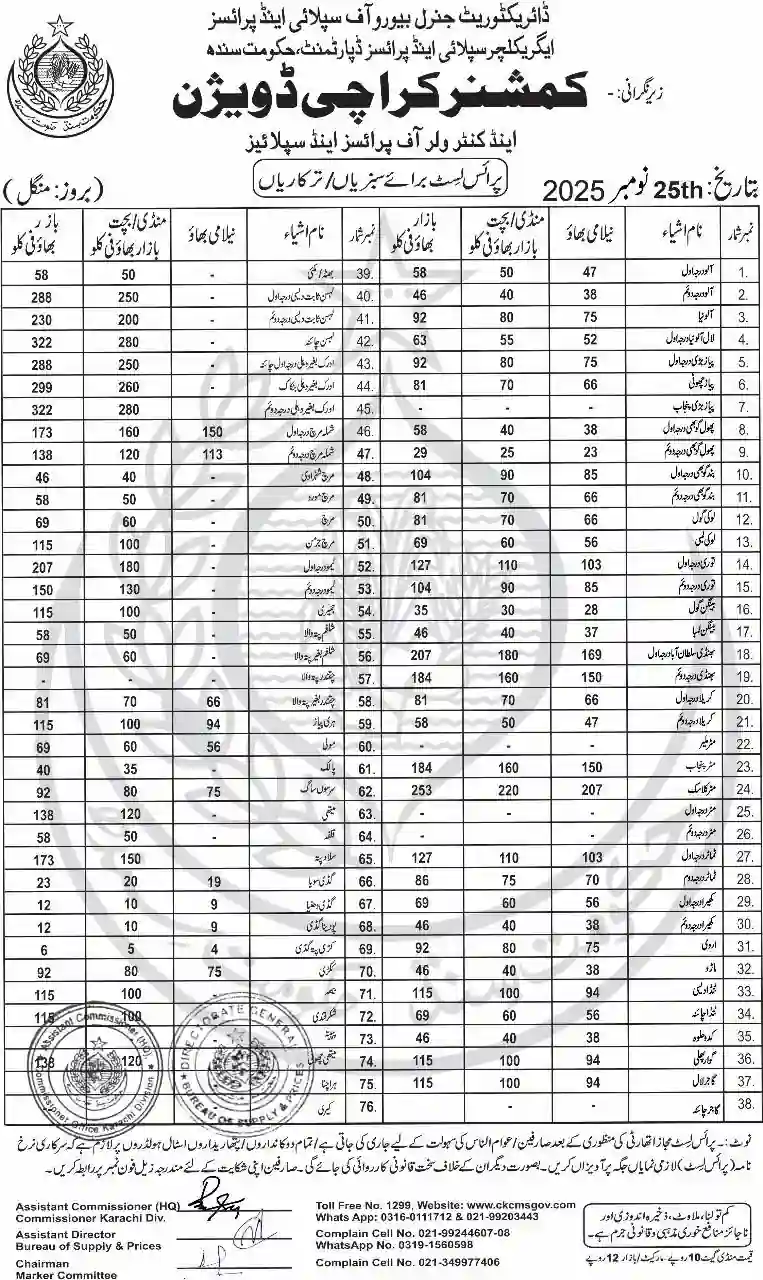 ڈائریکٹوریٹ جنرل بیورو آف سپلائی اینڈ پرائسز
ایگریکلچر سپلائی اینڈ پرائسز ڈپارٹمنٹ، حکومت سندھ
زیر نگرانی: - کمشنر کراچی ڈویژن
اینڈ کنٹرولر آف پرائسز اینڈ سپلائیز
بتاریخ: 25th نومبر 2025 پرائس لسٹ برائے سبزیاں/ترکاریاں (بروز: منگل)
نمبر شمار نام اشیاء نیلامی بھاؤ منڈی/بچت بازار بھاؤ فی کلو بازار بھاؤ فی کلو نمبر شمار نام اشیاء نیلامی بھاؤ منڈی/بچت بازار بھاؤ فی کلو بازار بھاؤ فی کلو
1. آلو درجہ اول 47 50 58 39. بھٹہ/مکئی - 50 58
2. آلو درجہ دوئم 38 40 46 40. لہسن ثابت دیسی درجہ اول - 250 288
3. آلو نیا 75 80 92 41. لہسن ثابت دیسی درجہ دوئم - 200 230
4. لال آلو نیا درجہ اول 52 55 63 42. لہسن چائنہ - 280 322
5. پیاز بڑی درجہ اول 75 80 92 43. ادرک بغیر دھلی درجہ اول چائنہ - 250 288
6. پیاز چھوٹی 66 70 81 44. ادرک بغیر دھلی بنکاک - 260 299
7. پیاز بڑی پنجاب - - - 45. ادرک بغیر دھلی درجہ دوئم 280 322
8. پھول گوبھی درجہ اول 38 40 58 46. شملہ مرچ درجہ اول 150 160 173
9. پھول گوبھی درجہ دوئم 23 25 29 47. شملہ مرچ درجہ دوئم 113 120 138
10. بند گوبھی درجہ اول 85 90 104 48. مرچ شہزادی - 40 46
11. بند گوبھی درجہ دوئم 66 70 81 49. مرچ مورو - 50 58
12. لوکی گول 66 70 81 50. مرچ - 60 69
13. لوکی لمبی 56 60 69 51. مرچ جرمن - 100 115
14. توری درجہ اول 103 110 127 52. لیمو درجہ اول - 180 207
15. توری درجہ دوئم 85 90 104 53. لیمو درجہ دوئم - 130 150
16. بینگن گول 28 30 35 54. - 100 115
17. بینگن لمبا 37 40 46 55. شلغم پتہ والا - 50 58
18. بھنڈی سلطان آباد درجہ اول 169 180 207 56. شلغم بغیر پتہ والا - 60 69
19. بھنڈی درجہ دوئم 150 160 184 57. چقندر پتہ والا - - -
20. کریلا درجہ اول 66 70 81 58. چقندر بغیر پتہ والا 66 70 81
21. کریلا درجہ دوئم 47 50 58 59. ہری پیاز 94 100 115
22. مٹر ملیر - - - 60. مولی 56 60 69
23. مٹر پنجاب 150 160 184 61. پالک - 35 40
24. مٹر کلاسک 207 220 253 62. سرسوں ساگ 75 80 92
25. مٹر درجہ اول - - - 63. میتھی - 120 138
26. مٹر درجہ دوئم - - - 64. قلفہ - 50 58
27. ٹماٹر درجہ اول 103 110 127 65. سلاد پتہ - 150 173
28. ٹماٹر درجہ دوم 70 75 86 66. گڈی سویا 19 20 23
29. کھیرا درجہ اول 56 60 69 67. گڈی دھنیا 9 10 12
30. کھیرا درجہ دوئم 38 40 46 68. پودینا گڈی 9 10 12
31. اروی 75 80 92 69. کڑی پتہ گڈی 4 5 6
32. ماڑو 38 40 46 70. ککڑی 75 80 92
33. ٹنڈا دیسی 94 100 115 71. 100 115
34. ٹنڈا چائنہ 56 60 69 72. شکرقندی 100 115
35. کدو حلوہ 38 40 46 73.
36. گوار پھلی 94 100 115 74. میتھی چھوٹی 120 138
37. گاجر لال 94 100 115 75. ہرا چنا
38. گاجر چائنہ - - 76. کیری
نوٹ: - پرائس لسٹ مجاز اتھارٹی کی منظوری کے بعد صارفین/عوام الناس کی سہولت کے لیے جاری کی جاتی ہے/تمام دوکانداروں/پتھاریداروں اسٹال ہولڈروں پر لازم ہے کہ سرکاری نرخ
نامہ (پرائس لسٹ) لازمی نمایاں جگہ پر آویزاں کریں۔ بصورت دیگر ان کے خلاف سخت قانونی کارروائی کی جائے گی۔ صارفین اپنی شکایت کے لئے مندرجہ زیل فون نمبر پر رابطہ کریں۔
Assistant Commissioner (HQ)
Commissioner Karachi Div.
Assistant Director
Bureau of Supply & Prices
Chairman
Marker Committee
Toll Free No. 1299, Website: www.ckcmsgov.com
Whats App: 0316-0111712 & 021-99203443
Complain Cell No. 021-99244607-08
WhatsApp No. 0319-1560598
Complain Cell No. 021-349977406
کم تولنا، ملاوٹ، ذخیرہ اندوزی اور
ناجائز منافع خوری مذہبی و قانونی جرم ہے۔
قیمت منڈی گیٹ 10 روپے، مارکیٹ/بازار 12 روپے
Assistant Commissioner (HQ)
Commissioner Office Karachi Division
DIRECTORATE GENERAL
BUREAU OF SUPPLY & PRICES